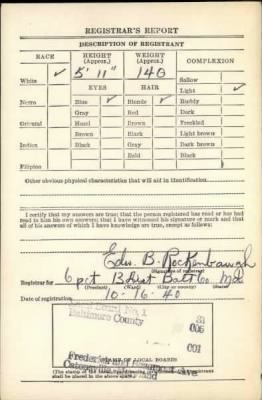 REGISTRAR'S REPORT
DESCRIPTION OF REGISTRANT
RACE
HEIGHT
(Approx.)
WEIGHT
(Approx.)
COMPLEXION
White ✓
5' 11"
140
Sallow
Light ✓
EYES
HAIR
Ruddy
Negro
Blue ✓
Blonde ✓
Dark
Gray
Red
Freckled
Oriental
Hazel
Brown
Light brown
Brown
Black
Dark brown
Indian
Black
Gray
Black
Bald
Filipino
Other obvious physical characteristics that will aid in identification
I certify that my answers are true; that the person registered has read or has had
read to him his own answers; that I have witnessed his signature or mark and that
all of his answers of which I have knowledge are true, except as follows:
Edw. B. Rockenbaugh
(Signature of registrar)
Registrar for 6 pct Balto Co. Md
(Precinct) (Ward) (City or county) (State)
Date of registration 10-16-40
No. 1
Baltimore County
31
005
001
Frederick Ave
(STAMP OF LOCAL BOARD)
(The stamp of the local
shall be placed in the above space.)